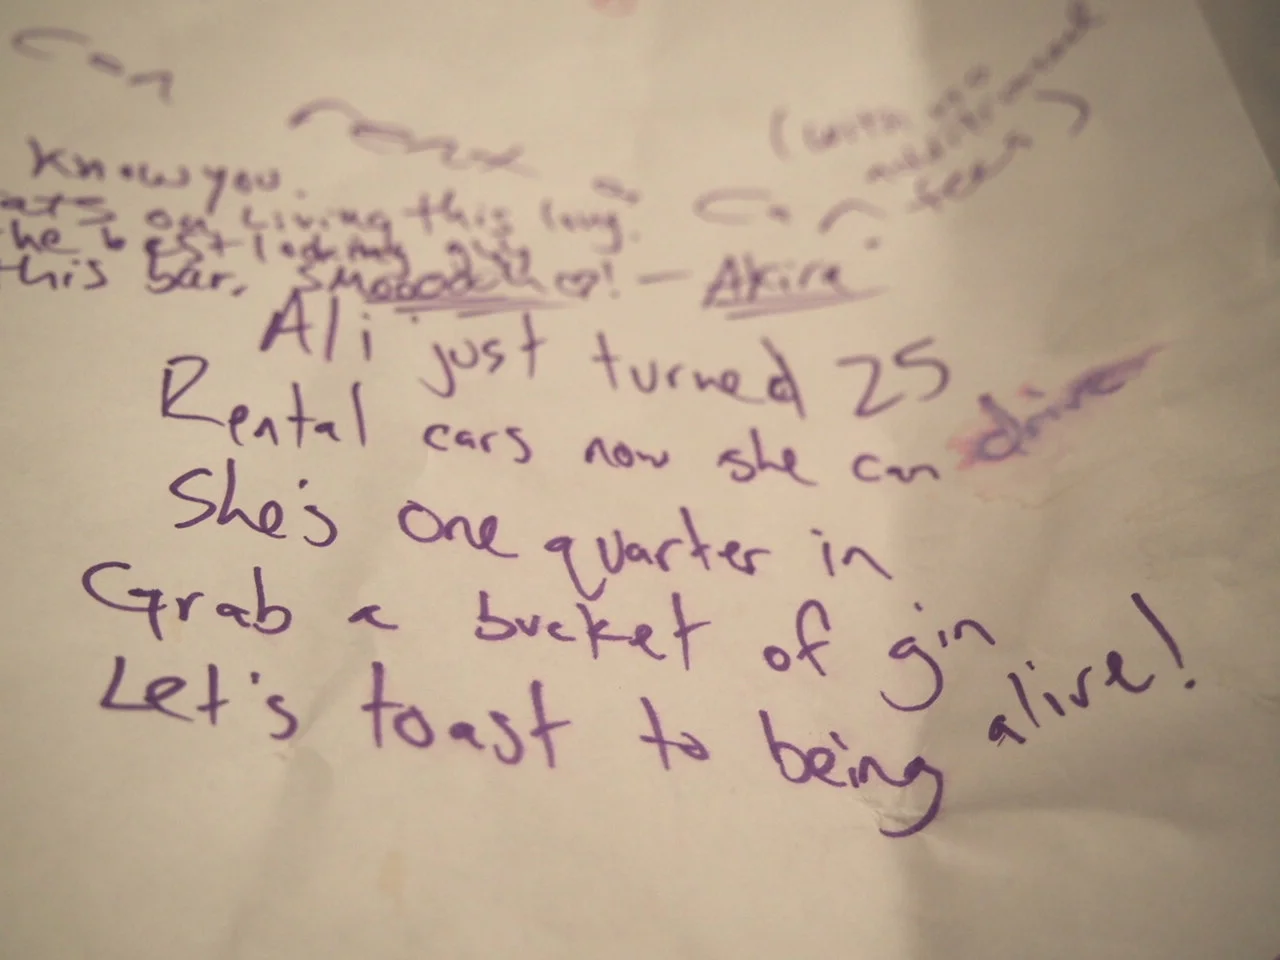 (with
fees)
Know you.
on living this long.
the best looking
this bar. — Akira
Ali just turned 25
Rental cars now she can drive
She's one quarter in
Grab a bucket of gin
Let's toast to being alive!